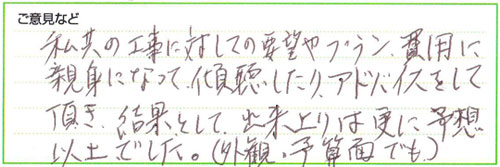 ご意見など
私共の工事に対しての要望やプラン、費用に
親身になって、傾聴したり、アドバイスをして
頂き、結果として、出来上りは更に予想
以上でした。(外観・予算面でも)